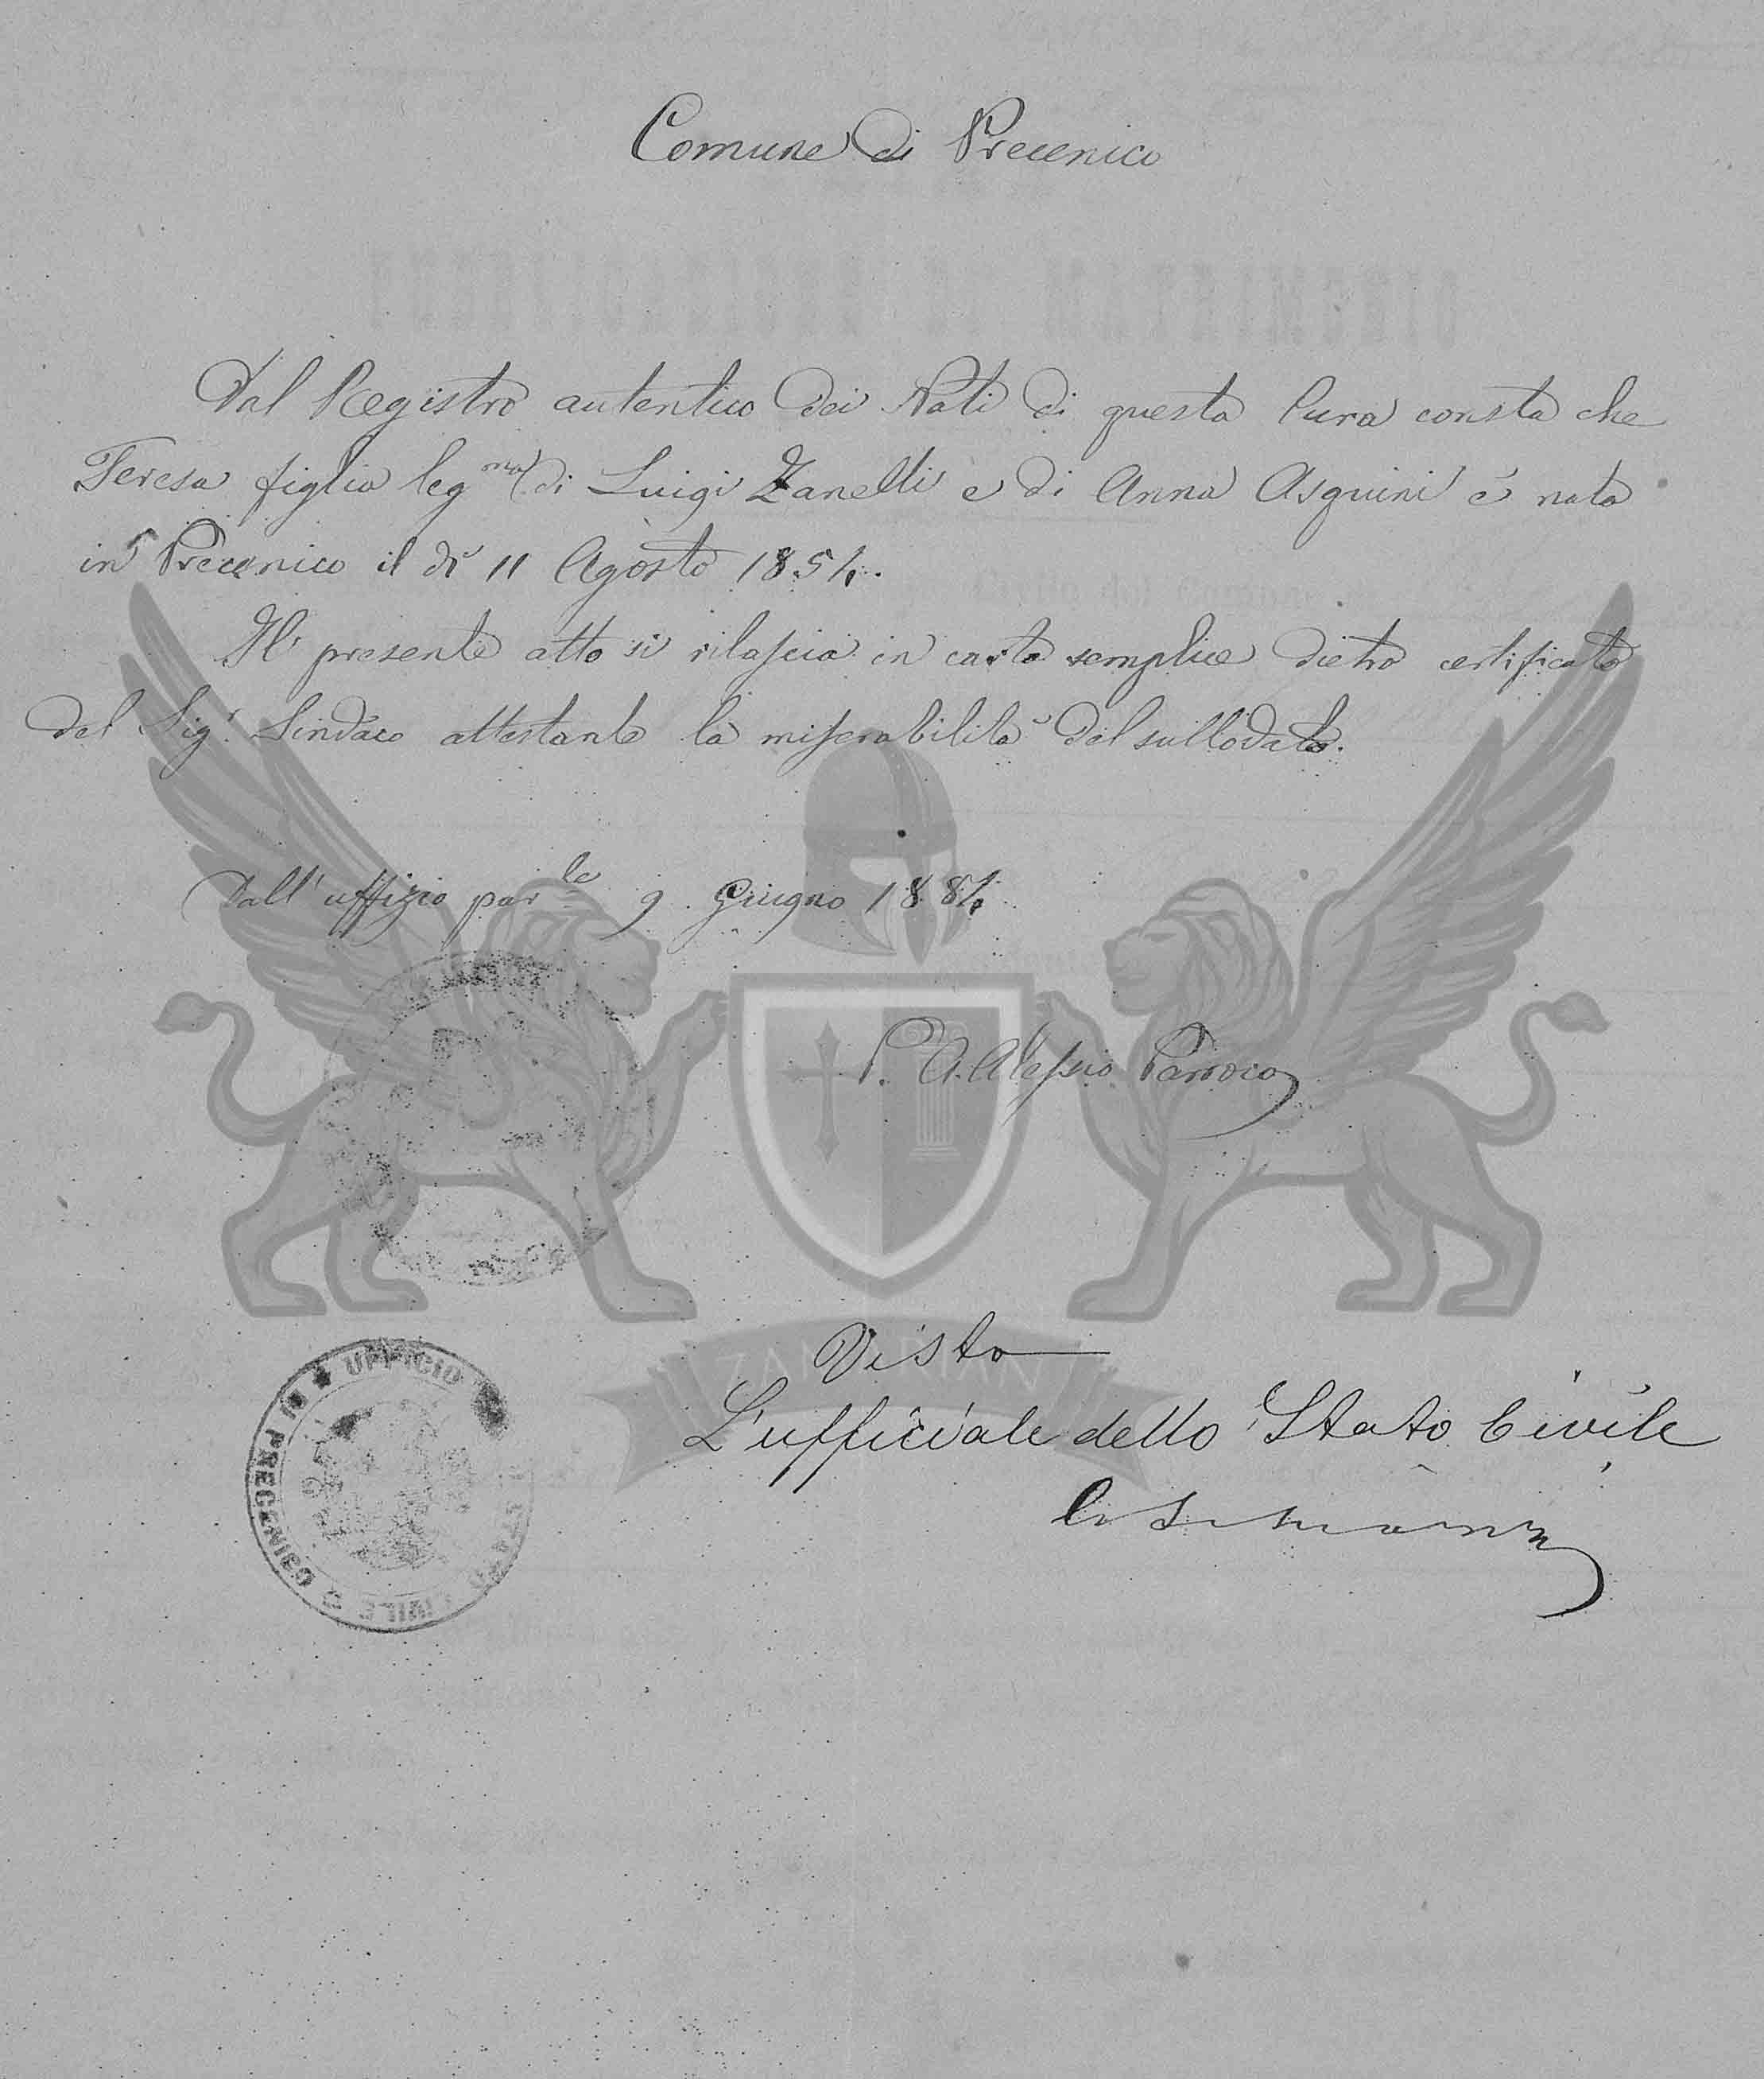 Comune di Precenico
Dal Registro autentico dei Nati di questa Cura consta che
Teresa figlia leg.ma di Luigi Zanelli e di Anna Asquini è nata
in Precenico il dì 11 Agosto 1854.
Il presente atto si rilascia in carta semplice dietro certificato
del Sig.r Sindaco attestante la miserabilità del sullodato.
Dall'uffizio par.le 9 Giugno 1884
P. A. Alessio Parroco
Visto
L'ufficiale dello Stato Civile
UFFICIO STATO CIVILE DI PRECENICO